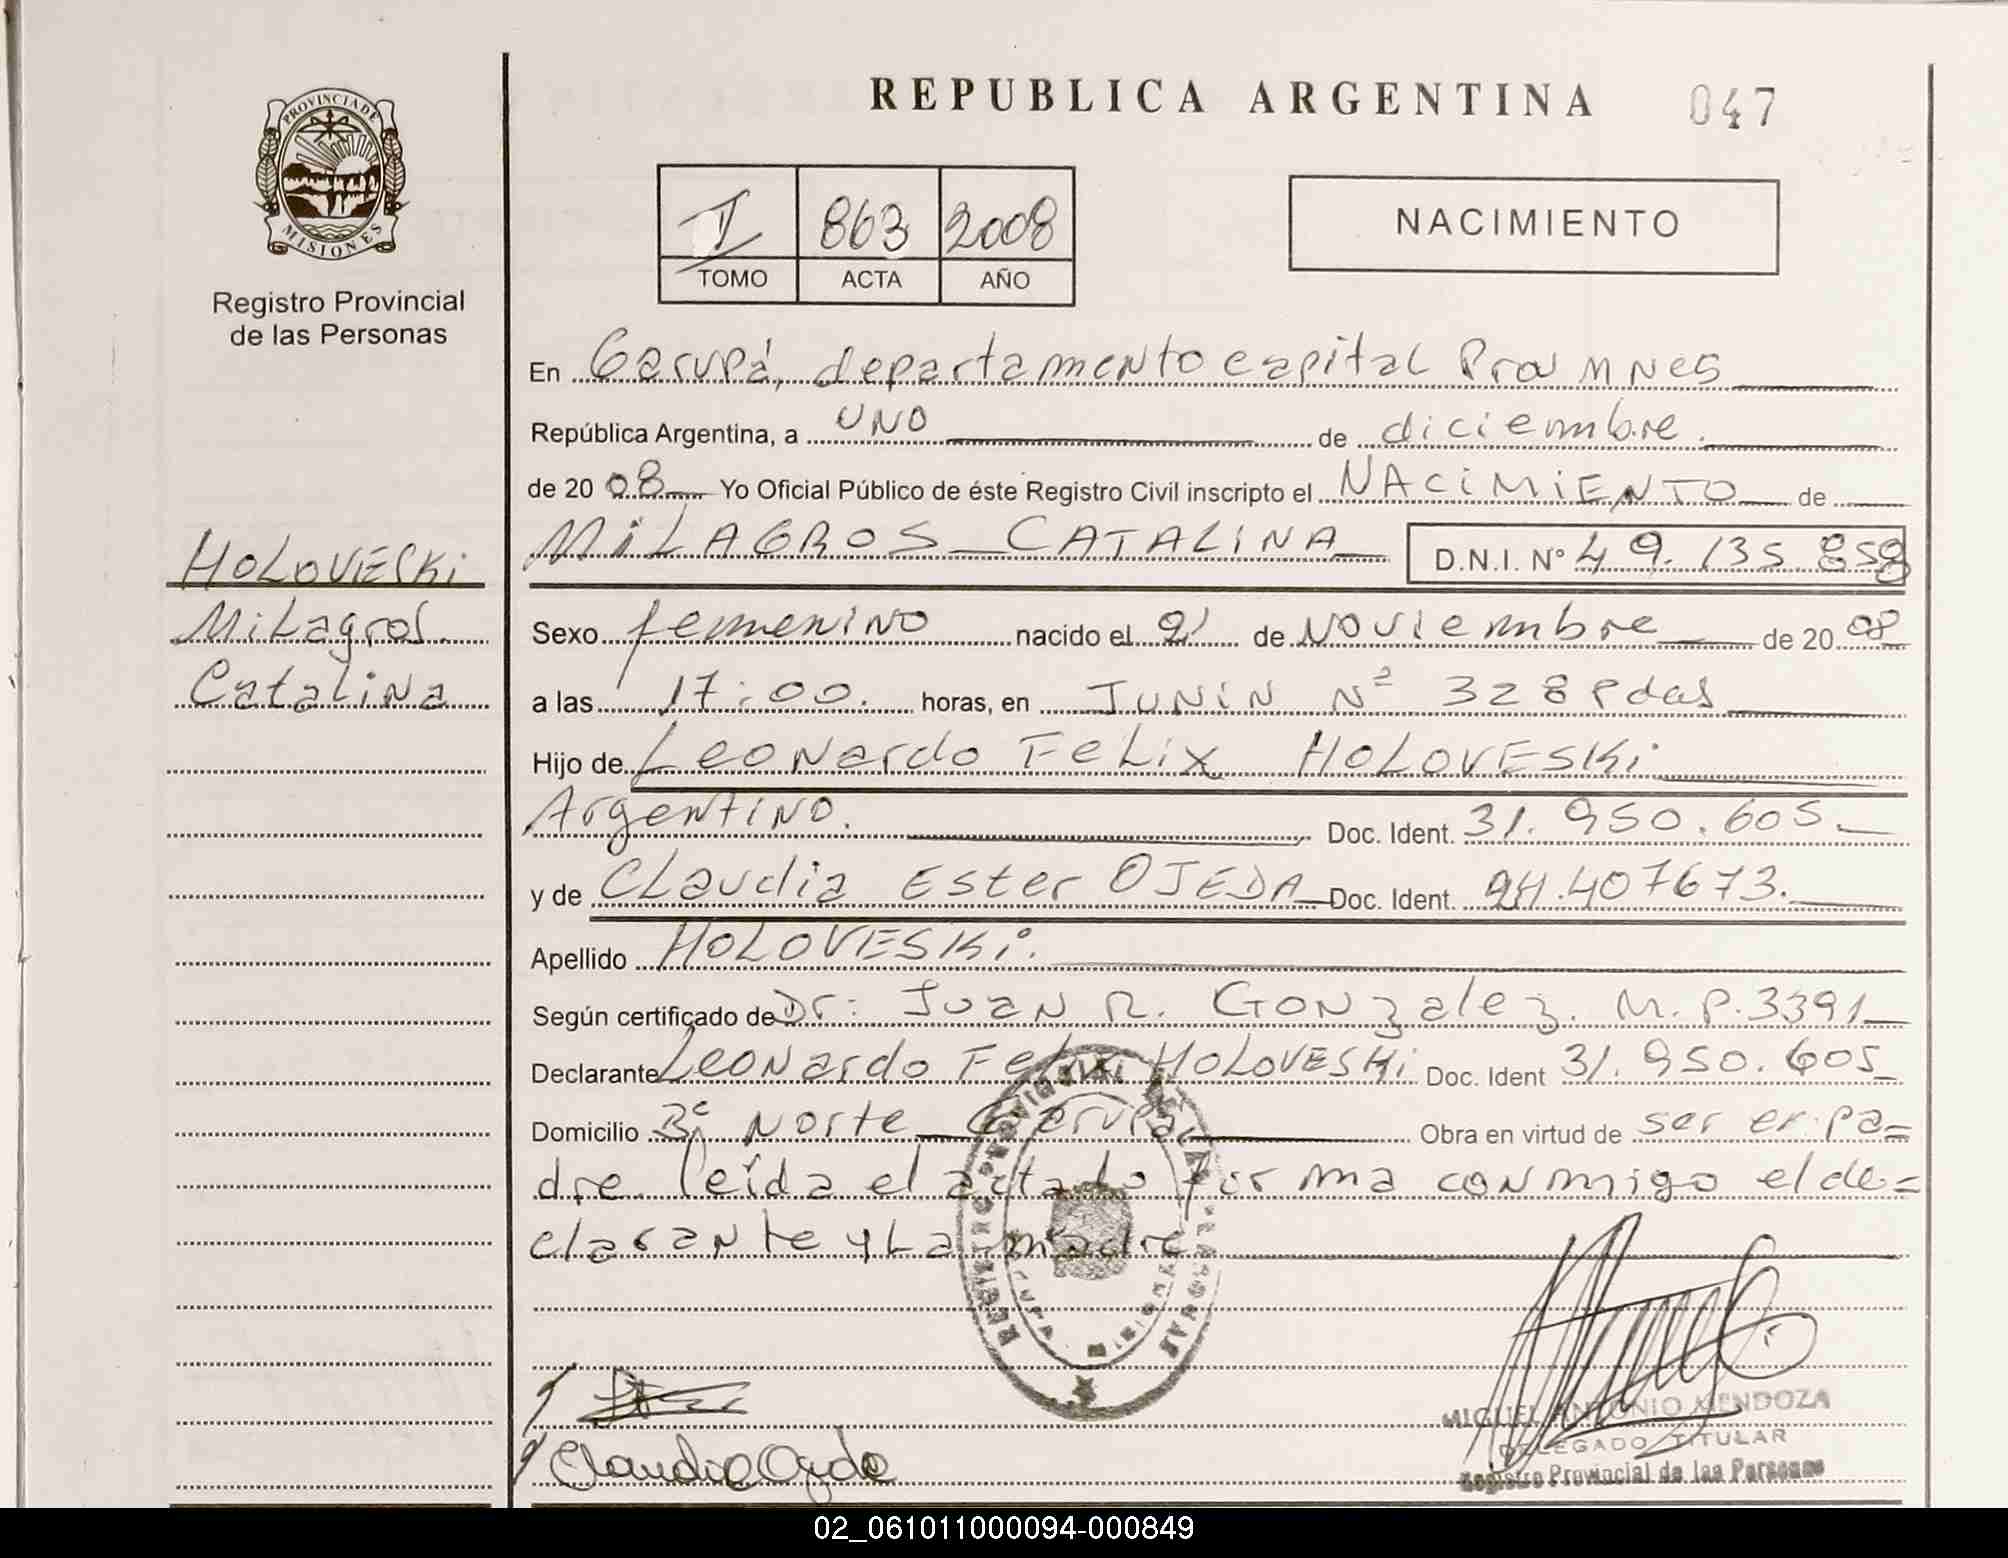 REPUBLICA ARGENTINA 047
PROVINCIA DE
MISIONES
Registro Provincial
de las Personas
I 863 2008
TOMO ACTA AÑO
NACIMIENTO
En Garupá, departamento capital Prov Mnes
República Argentina, a UNO de diciembre.
de 2008 Yo Oficial Público de éste Registro Civil inscripto el NACIMIENTO de
HOLOVESKi
Milagros
Catalina
MiLAGROS CATALINA D.N.I. Nº 49.135.858
Sexo femenino nacido el de Noviembre de 2008
a las 17:00. horas, en JUNIN Nº 328 Pdas
Hijo de Leonardo FeLix HOLOVESKi
Argentino. Doc. Ident. 31.950.605.
y de CLaudia Ester OJEDA Doc. Ident. 24.407673.
Apellido HOLOVESKi.
Según certificado de Dr: Juan R. Gonzalez. M.P.3391
Declarante Leonardo Felix HOLOVESKi Doc. Ident 31.950.605
Domicilio Norte Garupá Obra en virtud de ser er pa=
dre. leída el acta lo firma conmigo el de=
clarante y La madre
REGISTRO PROVINCIAL DE LAS PERSONAS
MISIONES
Claudia Ojeda
MIGUEL ANTONIO MENDOZA
DELEGADO TITULAR
Registro Provincial de las Personas
02_061011000094-000849